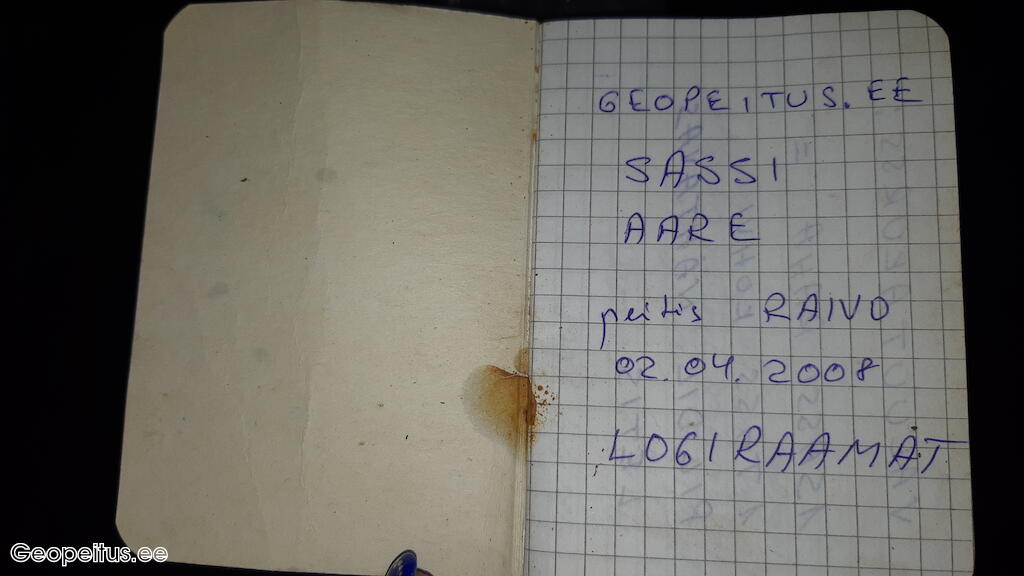 GEOPEITUS.EE
SASSI
AARE
peitis RAIVO
02.04.2008
LOGIRAAMAT
Geopeitus.ee